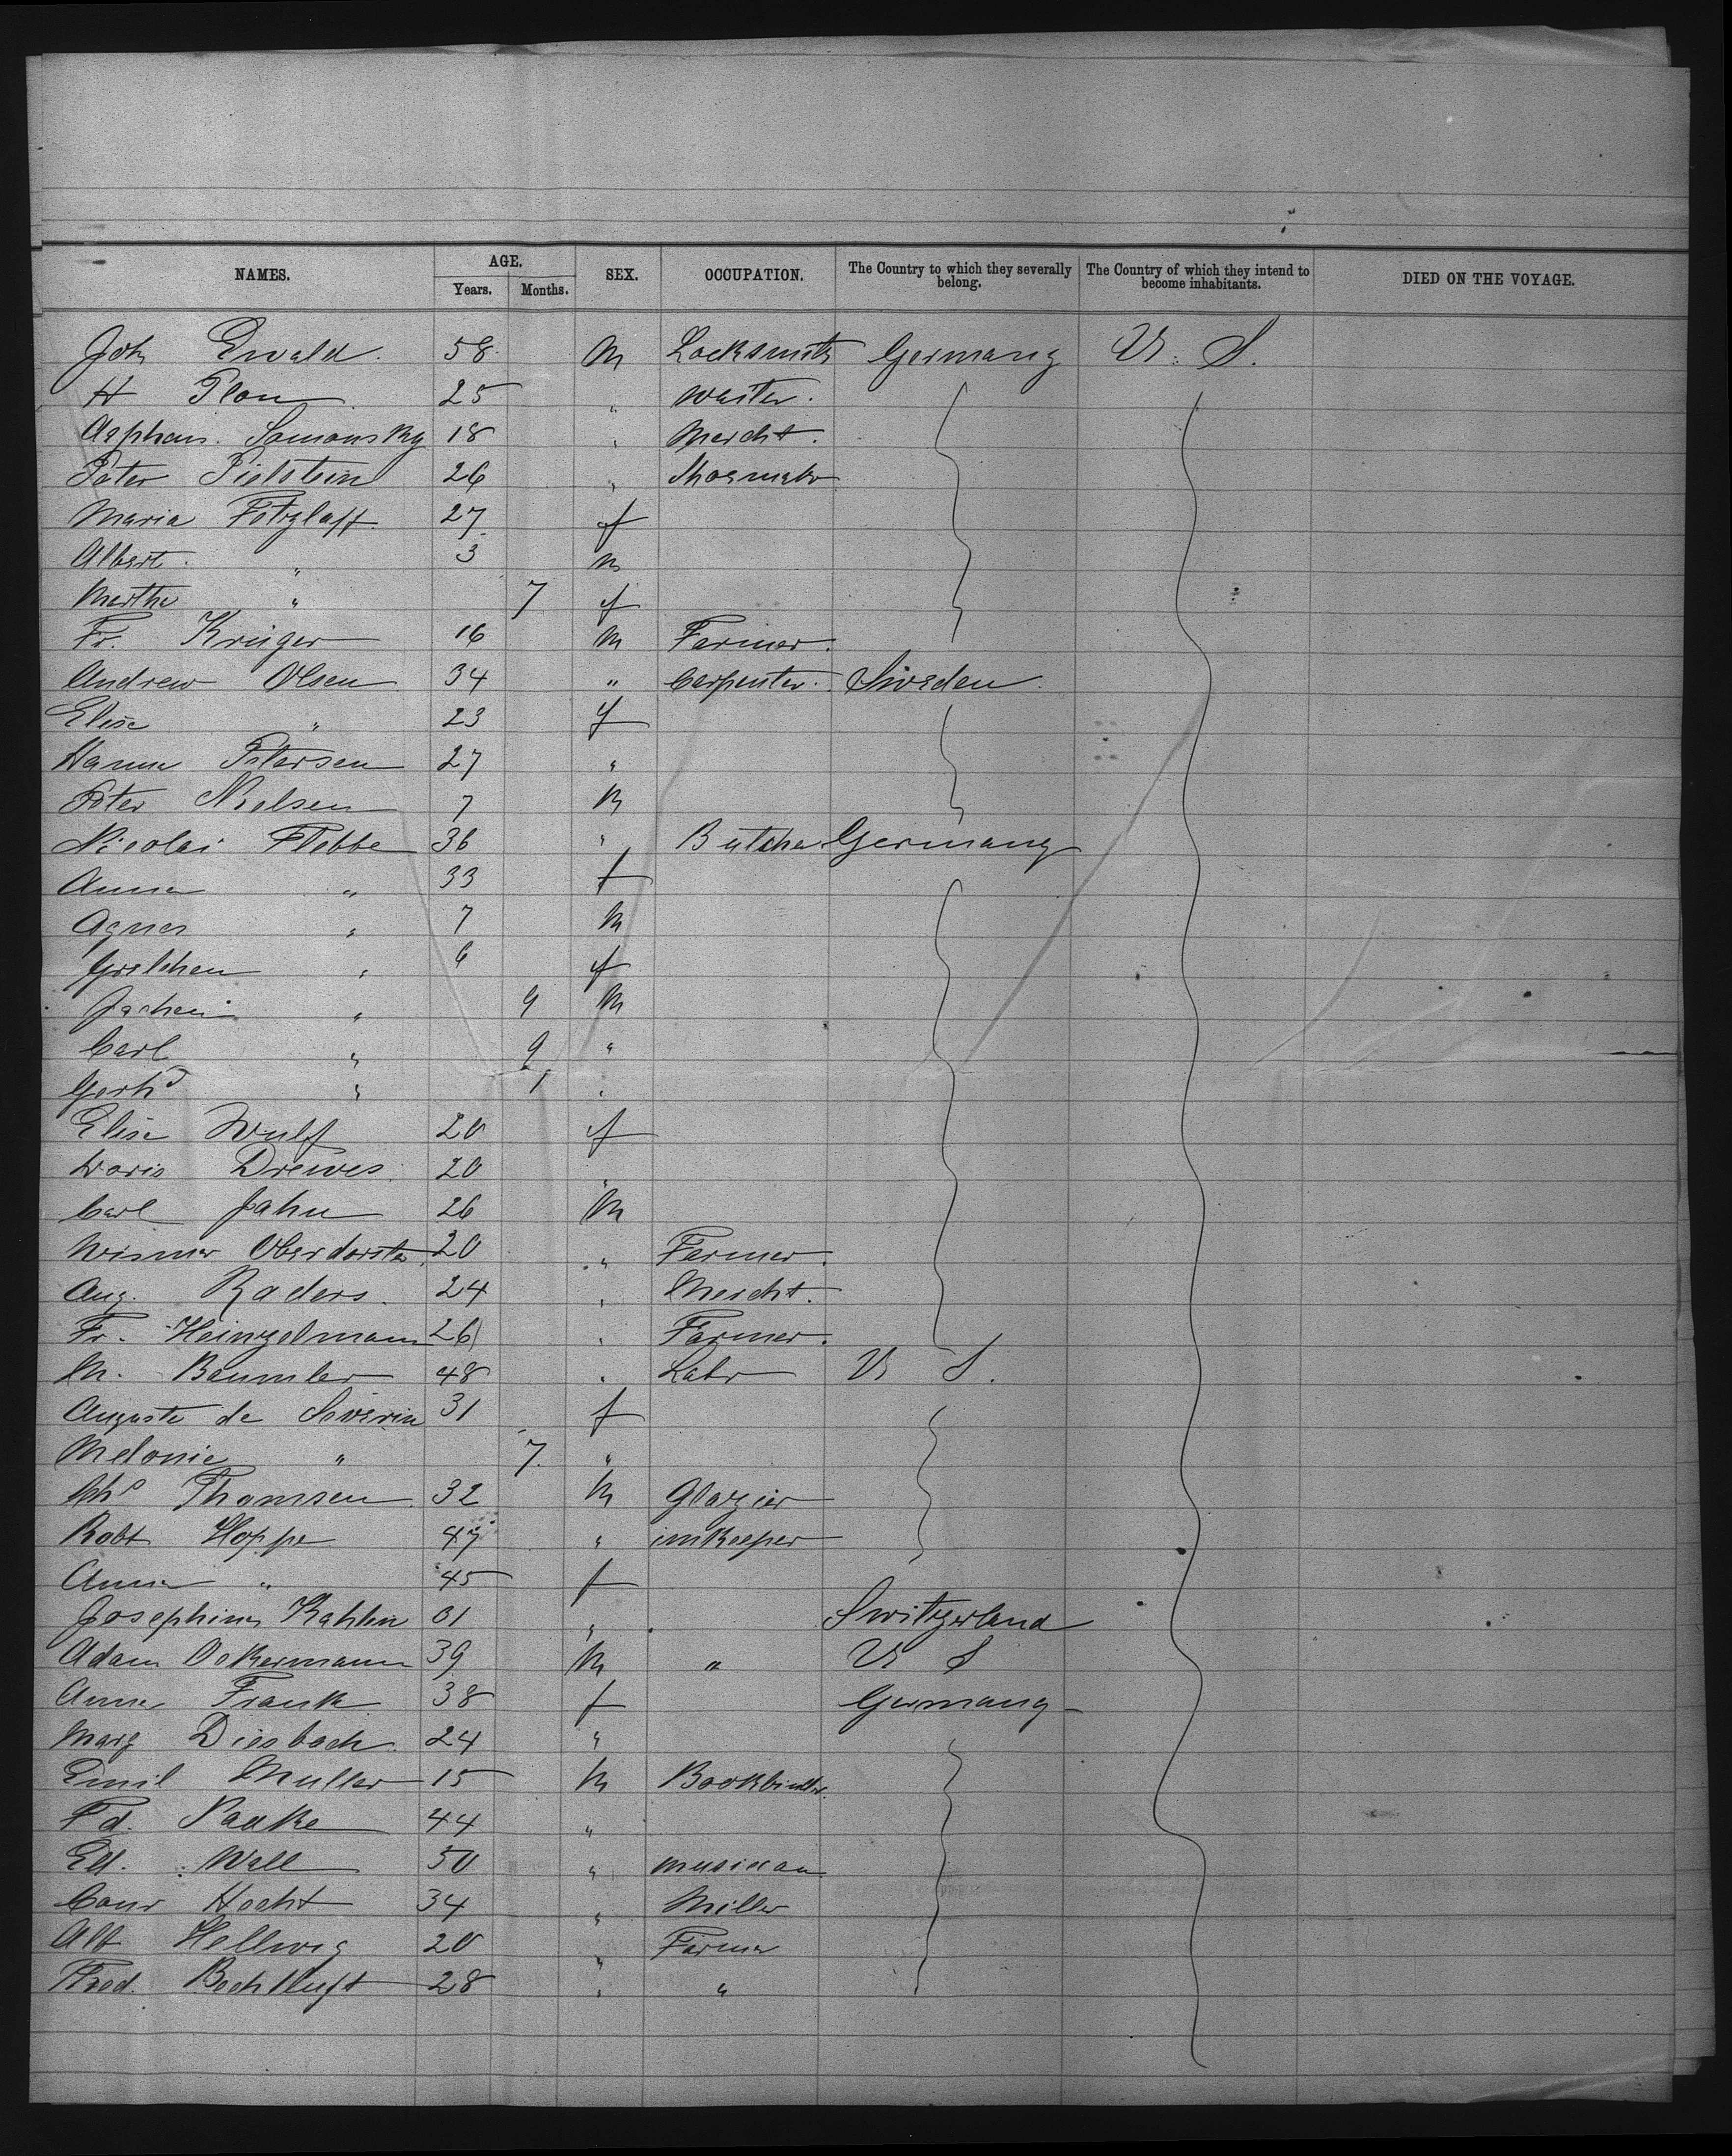 NAMES. AGE. SEX. OCCUPATION. The Country to which they severally belong. The Country of which they intend to become inhabitants. DIED ON THE VOYAGE.
Years. Months.
Joh Ewald. 58 M Locksmith Germany U. S.
H Plon 25 " waiter.
Samonsky 18 " Mercht.
Peter Pielstein 26 "
Maria 27 f
Albert " 3 m
Martha " 7 f
Fr. Krüger 16 M Farmer.
Andrew Olsen 34 " Carpenter. Sweden.
Elise " 23 f
Hanna Petersen 27 "
Peter Nielsen 7 M
Nicolai Flebbe 36 " Butcher Germany
Anna " 33 f
Agnes " 7 M
Gretchen " 6 f
Jochen " 9 M
Carl " 9 "
Gerhd " 1 "
Elise Wulf 20 f
Doris Drewes 20 "
Carl Jahn 26 M
Oberdorster 20 " Farmer.
Aug. Raders. 24 " Mercht.
Fr. Heinzelmann 26 " Farmer.
M. Baumler 48 " Labr U S.
Auguste de Severin 31 f
Melonie " 7 "
Chs Thomsen 32 M Glazier
Robt Hoppe 47 " innkeeper
Anna " 45 f
Josephine Kahlin " Switzerland
Adam Ackermann 39 M " U S
Anna Frank 38 f Germany
Marg Diesbach 24 "
Emil Muller 15 M Bookbinder.
Fd. Paake 44 "
Ed. Wall 50 " musician
Conr Hecht 34 " Miller
Alb Hellwig 20 " Farmer
Fred. 28 " "